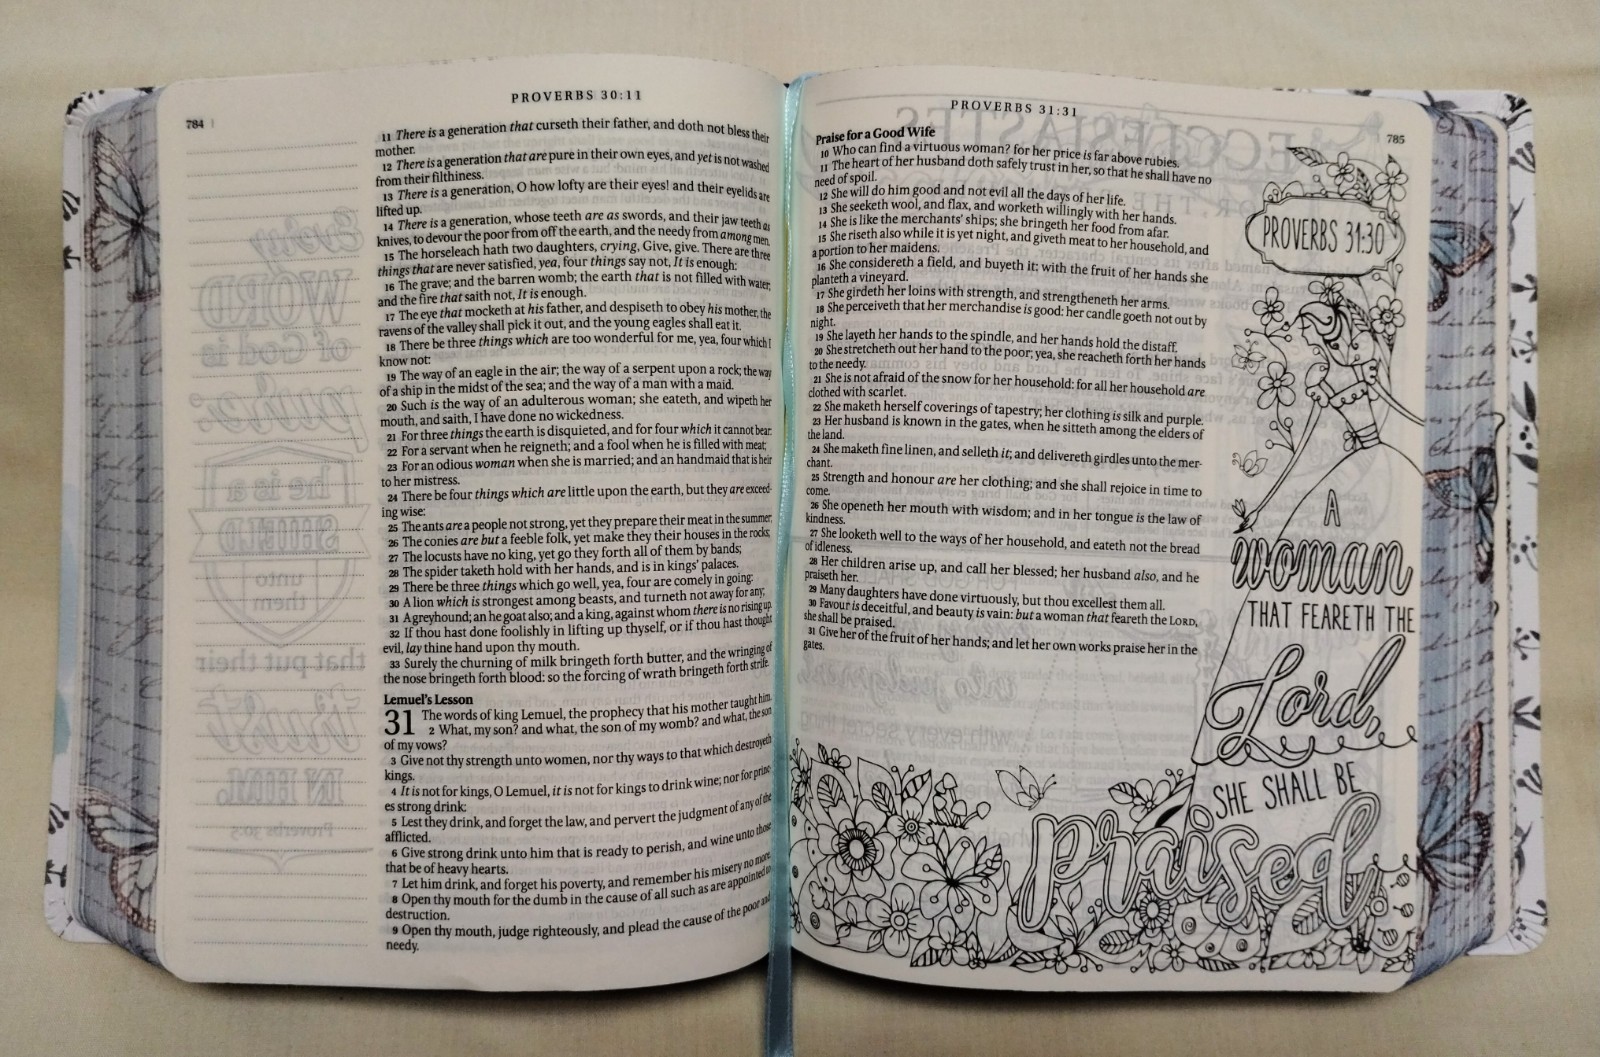 PROVERBS 30:11
784
11 There is a generation that curseth their father, and doth not bless their
mother.
12 There is a generation that are pure in their own eyes, and yet is not washed
from their filthiness.
13 There is a generation, O how lofty are their eyes! and their eyelids are
lifted up.
14 There is a generation, whose teeth are as swords, and their jaw teeth as
knives, to devour the poor from off the earth, and the needy from among men.
15 The horseleach hath two daughters, crying, Give, give. There are three
things that are never satisfied, yea, four things say not, It is enough:
16 The grave; and the barren womb; the earth that is not filled with water;
and the fire that saith not, It is enough.
17 The eye that mocketh at his father, and despiseth to obey his mother, the
ravens of the valley shall pick it out, and the young eagles shall eat it.
18 There be three things which are too wonderful for me, yea, four which I
know not:
19 The way of an eagle in the air; the way of a serpent upon a rock; the way
of a ship in the midst of the sea; and the way of a man with a maid.
20 Such is the way of an adulterous woman; she eateth, and wipeth her
mouth, and saith, I have done no wickedness.
21 For three things the earth is disquieted, and for four which it cannot bear:
22 For a servant when he reigneth; and a fool when he is filled with meat;
23 For an odious woman when she is married; and an handmaid that is heir
to her mistress.
24 There be four things which are little upon the earth, but they are exceed-
ing wise:
25 The ants are a people not strong, yet they prepare their meat in the summer;
26 The conies are but a feeble folk, yet make they their houses in the rocks;
27 The locusts have no king, yet go they forth all of them by bands;
28 The spider taketh hold with her hands, and is in kings' palaces.
29 There be three things which go well, yea, four are comely in going:
30 A lion which is strongest among beasts, and turneth not away for any;
31 A greyhound; an he goat also; and a king, against whom there is no rising up.
32 If thou hast done foolishly in lifting up thyself, or if thou hast thought
evil, lay thine hand upon thy mouth.
33 Surely the churning of milk bringeth forth butter, and the wringing of
the nose bringeth forth blood: so the forcing of wrath bringeth forth strife.
Lemuel's Lesson
31 The words of king Lemuel, the prophecy that his mother taught him.
2 What, my son? and what, the son of my womb? and what, the son
of my vows?
3 Give not thy strength unto women, nor thy ways to that which destroyeth
kings.
4 It is not for kings, O Lemuel, it is not for kings to drink wine; nor for princ
es strong drink:
5 Lest they drink, and forget the law, and pervert the judgment of any of the
afflicted.
6 Give strong drink unto him that is ready to perish, and wine unto those
that be of heavy hearts.
7 Let him drink, and forget his poverty, and remember his misery no more.
8 Open thy mouth for the dumb in the cause of all such as are appointed to
destruction.
9 Open thy mouth, judge righteously, and plead the cause of the poor and
needy.
PROVERBS 31:31
785
Praise for a Good Wife
10 Who can find a virtuous woman? for her price is far above rubies.
11 The heart of her husband doth safely trust in her, so that he shall have no
need of spoil.
12 She will do him good and not evil all the days of her life.
13 She seeketh wool, and flax, and worketh willingly with her hands.
14 She is like the merchants' ships; she bringeth her food from afar.
15 She riseth also while it is yet night, and giveth meat to her household, and
a portion to her maidens.
16 She considereth a field, and buyeth it: with the fruit of her hands she
planteth a vineyard.
17 She girdeth her loins with strength, and strengtheneth her arms.
18 She perceiveth that her merchandise is good: her candle goeth not out by
night.
19 She layeth her hands to the spindle, and her hands hold the distaff.
20 She stretcheth out her hand to the poor; yea, she reacheth forth her hands
to the needy.
21 She is not afraid of the snow for her household: for all her household are
clothed with scarlet.
22 She maketh herself coverings of tapestry; her clothing is silk and purple.
23 Her husband is known in the gates, when he sitteth among the elders of
the land.
24 She maketh fine linen, and selleth it; and delivereth girdles unto the mer-
chant.
25 Strength and honour are her clothing; and she shall rejoice in time to
come.
26 She openeth her mouth with wisdom; and in her tongue is the law of
kindness.
27 She looketh well to the ways of her household, and eateth not the bread
of idleness.
28 Her children arise up, and call her blessed; her husband also, and he
praiseth her.
29 Many daughters have done virtuously, but thou excellest them all.
30 Favour is deceitful, and beauty is vain: but a woman that feareth the LORD,
she shall be praised.
31 Give her of the fruit of her hands; and let her own works praise her in the
gates.
PROVERBS 31:30
A
woman
THAT FEARETH THE
Lord,
SHE SHALL BE
praised.